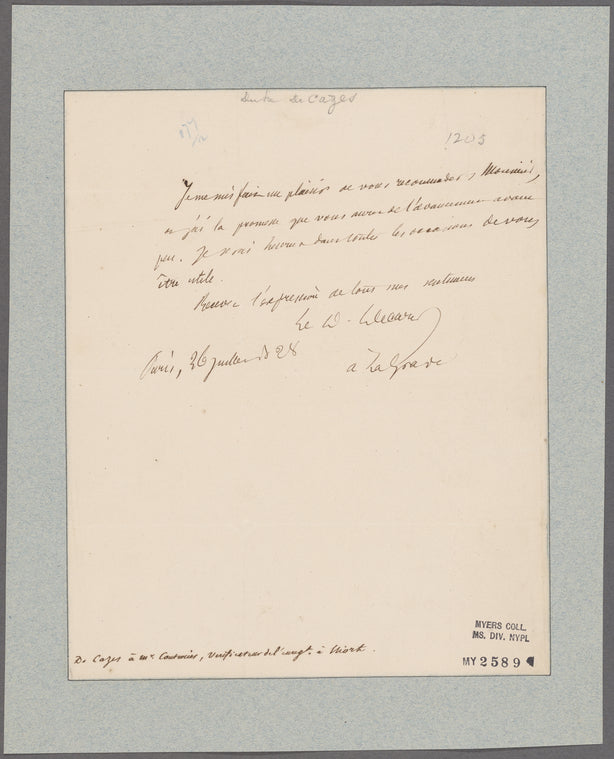 Duke De Cazes
1203
Je me suis fait un plaisir de vous recommander, Monsieur,
et j'ai la promesse que vous aurez de l'avancement avant
peu. Je serai heureux dans toutes les occasions de vous
être utile.
Recevez l'expression de tous mes sentimens
Le D.
Paris, 26 juillet 28
à La Grave
De Cazes à mr. Couturier, vérificateur de l'enregt. à Niort.
MYERS COLL.
MS. DIV. NYPL
MY 2589